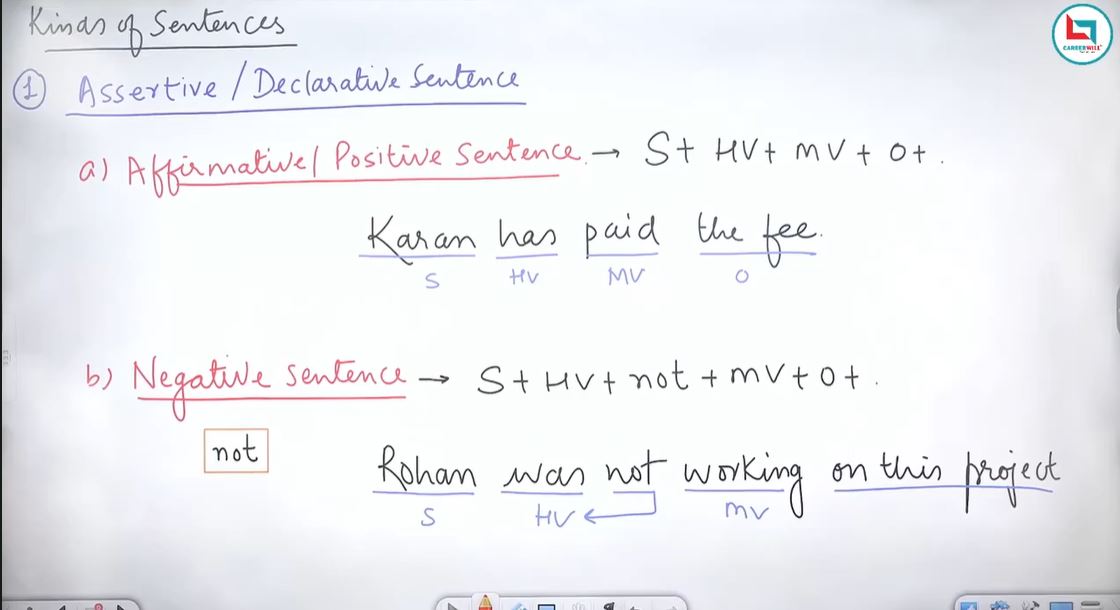 Kinds of Sentences
CAREERWILL
① Assertive / Declarative Sentence
a) Affirmative / Positive Sentence. → S+ HV+ MV + O+ .
Karan has paid the fee.
S HV MV O
b) Negative sentence → S+ HV+ not + MV+ O+ .
not
Rohan was not working on this project
S HV ← MV